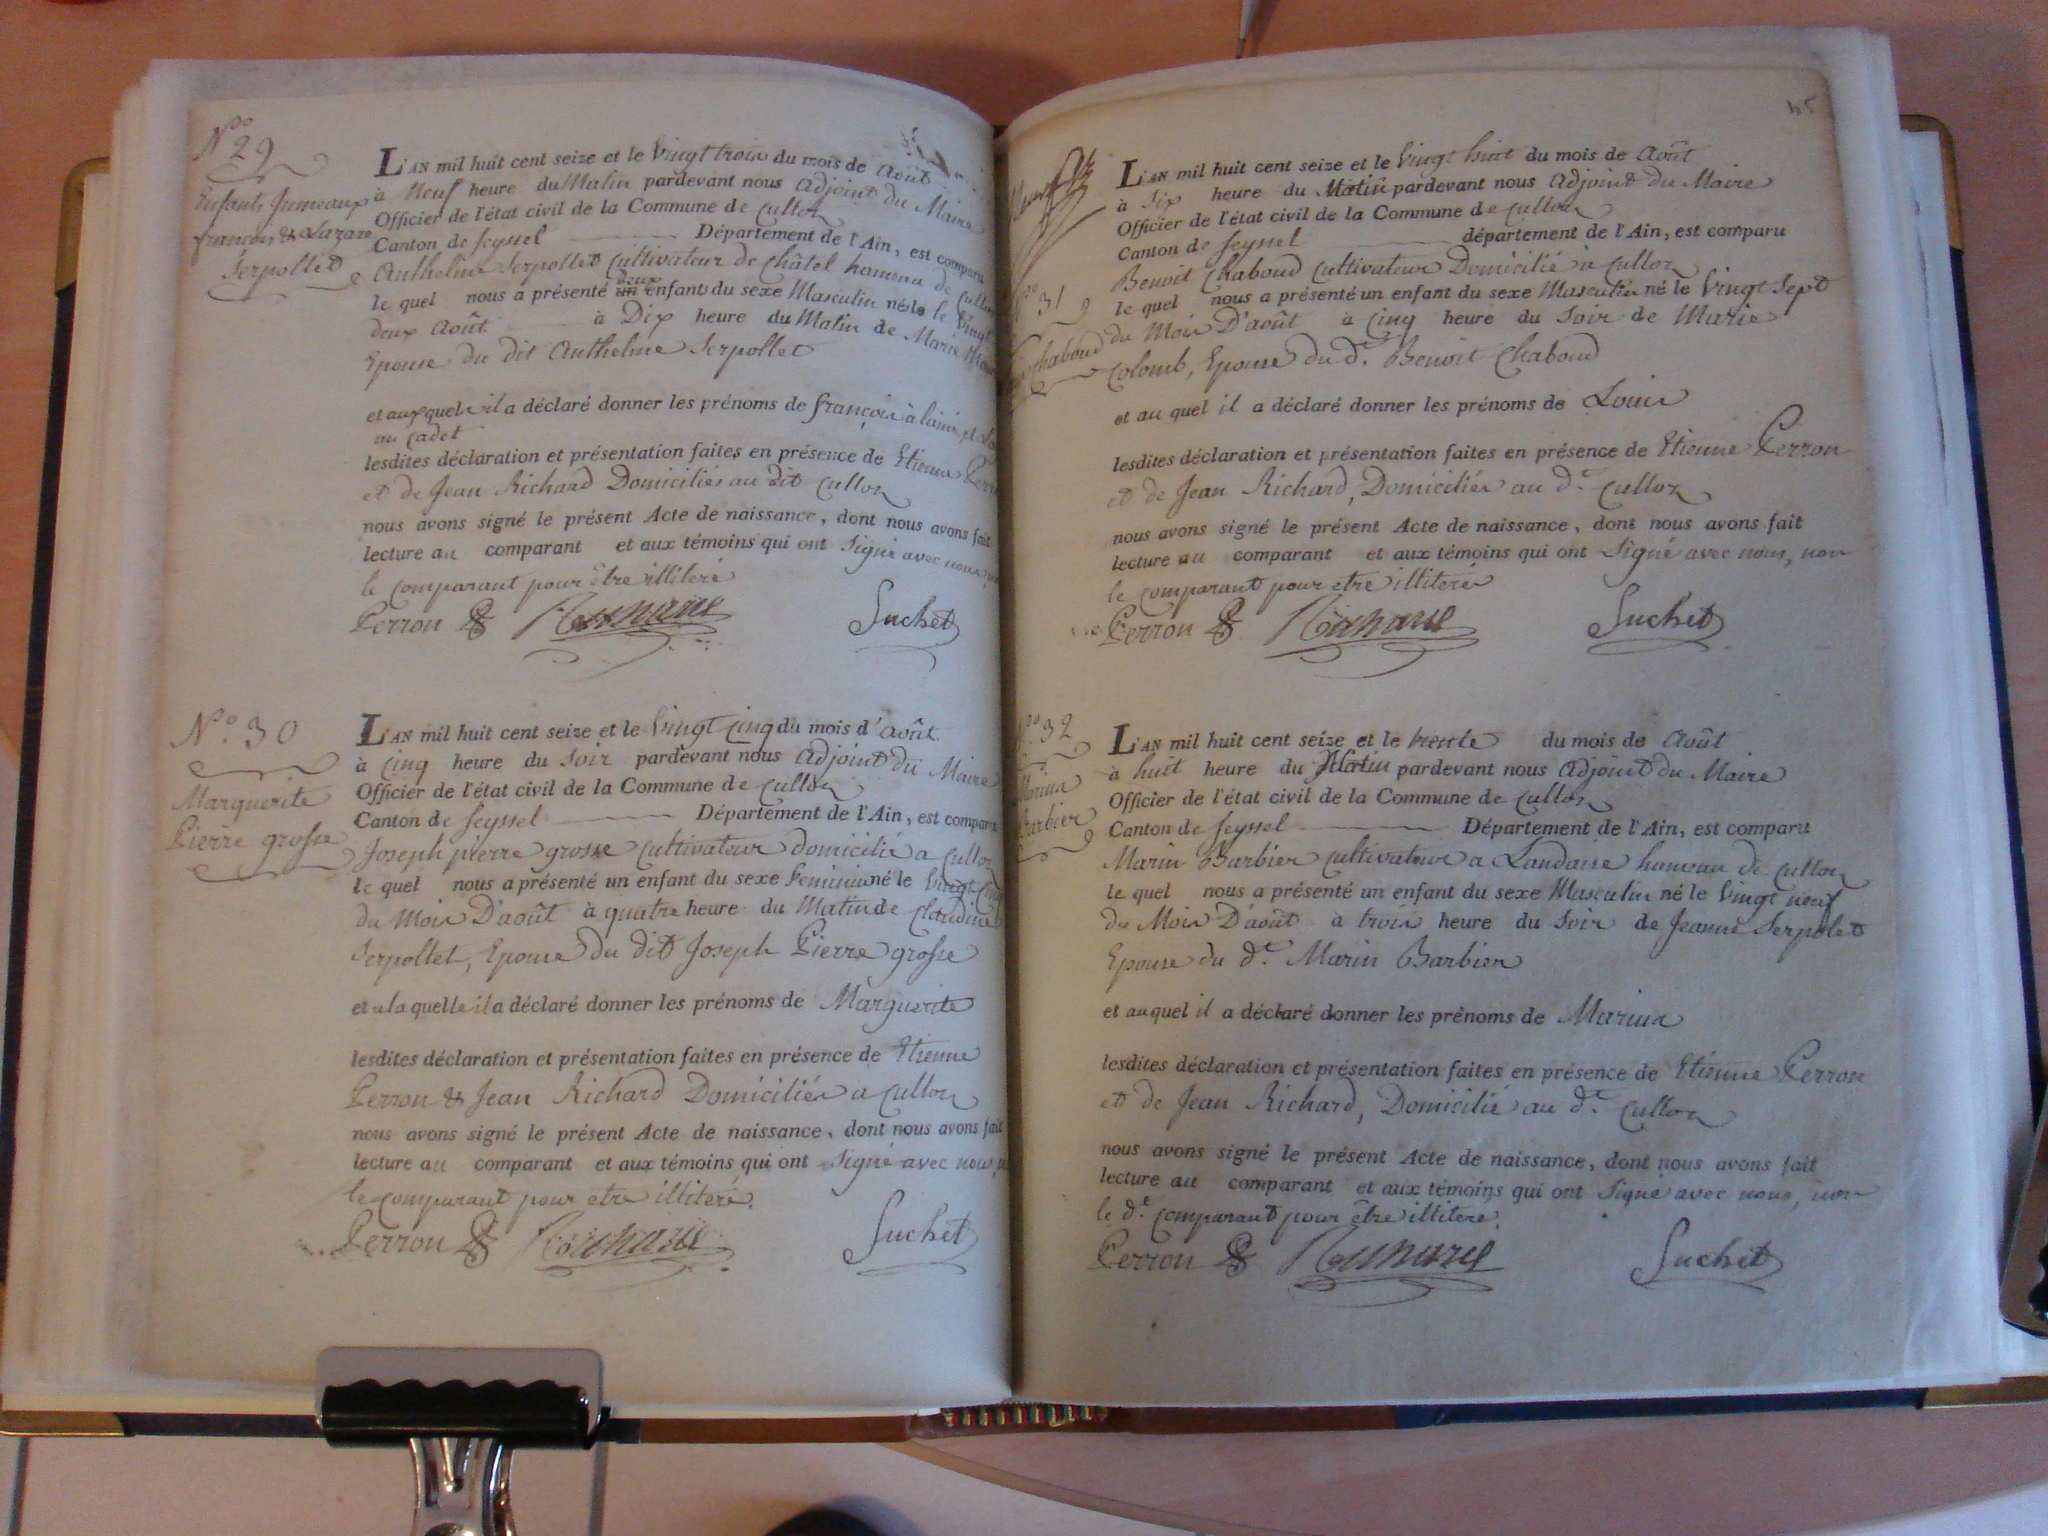 N.º 29
Enfants Jumeaux
francois & Lazare
Serpollet
L'AN mil huit cent seize et le Vingt trois du mois de Août
à Neuf heure du Matin pardevant nous Adjoint du Maire
Officier de l'état civil de la Commune de Culloz
Canton de Seyssel Département de l'Ain, est comparu
Anthelme Serpollet Cultivateur de Châtel hameau de Culloz
le quel nous a présenté un deux enfants du sexe Masculin nés le Vingt
deux Août à Dix heure du Matin de Marie
Epouse du dit Anthelme Serpollet
et auxquels il a déclaré donner les prénoms de françois à lainé et
au Cadet
lesdites déclaration et présentation faites en présence de Etienne Perron
et de Jean Richard Domiciliés au dit Culloz
nous avons signé le présent Acte de naissance, dont nous avons fait
lecture au comparant et aux témoins qui ont Signé avec nous
le comparant pour être illiteré
Perron Richard Suchet
N.º 30
Marguerite
Pierre grosse
L'AN mil huit cent seize et le Vingt Cinq du mois d'août
à Cinq heure du Soir pardevant nous Adjoint du Maire
Officier de l'état civil de la Commune de Culloz
Canton de Seyssel Département de l'Ain, est comparu
Joseph pierre grosse Cultivateur domicilié a Culloz
le quel nous a présenté un enfant du sexe feminin né le Vingt Cinq
du Mois D'août à quatre heure du Matin de Claudine
Serpollet, Epouse du dit Joseph Pierre grosse
et a la quelle il a déclaré donner les prénoms de Marguerite
lesdites déclaration et présentation faites en présence de Etienne
Perron & Jean Richard Domiciliés a Culloz
nous avons signé le présent Acte de naissance, dont nous avons fait
lecture au comparant et aux témoins qui ont Signé avec nous
le comparant pour etre illiteré.
Perron Richard Suchet
45
N.º 31
Chaboud
L'AN mil huit cent seize et le Vingt huit du mois de Août
à Six heure du Matin pardevant nous Adjoint du Maire
Officier de l'état civil de la Commune de Culloz
Canton de Seyssel département de l'Ain, est comparu
Benoit Chaboud Cultivateur Domicilié a Culloz
le quel nous a présenté un enfant du sexe Masculin né le Vingt Sept
du Mois D'août à Cinq heure du Soir de Marie
Colomb, Epouse du d.t Benoit Chaboud
et au quel il a déclaré donner les prénoms de Louis
lesdites déclaration et présentation faites en présence de Etienne Perron
et de Jean Richard, Domiciliés au d.t Culloz
nous avons signé le présent Acte de naissance, dont nous avons fait
lecture au comparant et aux témoins qui ont Signé avec nous, non
le comparant pour etre illiteré
Perron Richard Suchet
N.º 32
Marina
Barbier
L'AN mil huit cent seize et le trente du mois de Août
à huit heure du Matin pardevant nous Adjoint du Maire
Officier de l'état civil de la Commune de Culloz
Canton de Seyssel Département de l'Ain, est comparu
Marin Barbier Cultivateur a Landaise hameau de Culloz
le quel nous a présenté un enfant du sexe Masculin né le Vingt neuf
du Mois D'août à trois heure du Soir de Jeanne Serpolet
Epouse du d.t Marin Barbier
et au quel il a déclaré donner les prénoms de Marina
lesdites déclaration et présentation faites en présence de Etienne Perron
et de Jean Richard, Domicilié au d.t Culloz
nous avons signé le présent Acte de naissance, dont nous avons fait
lecture au comparant et aux témoins qui ont Signé avec nous, non
le d.t comparant pour être illiteré.
Perron Richard Suchet